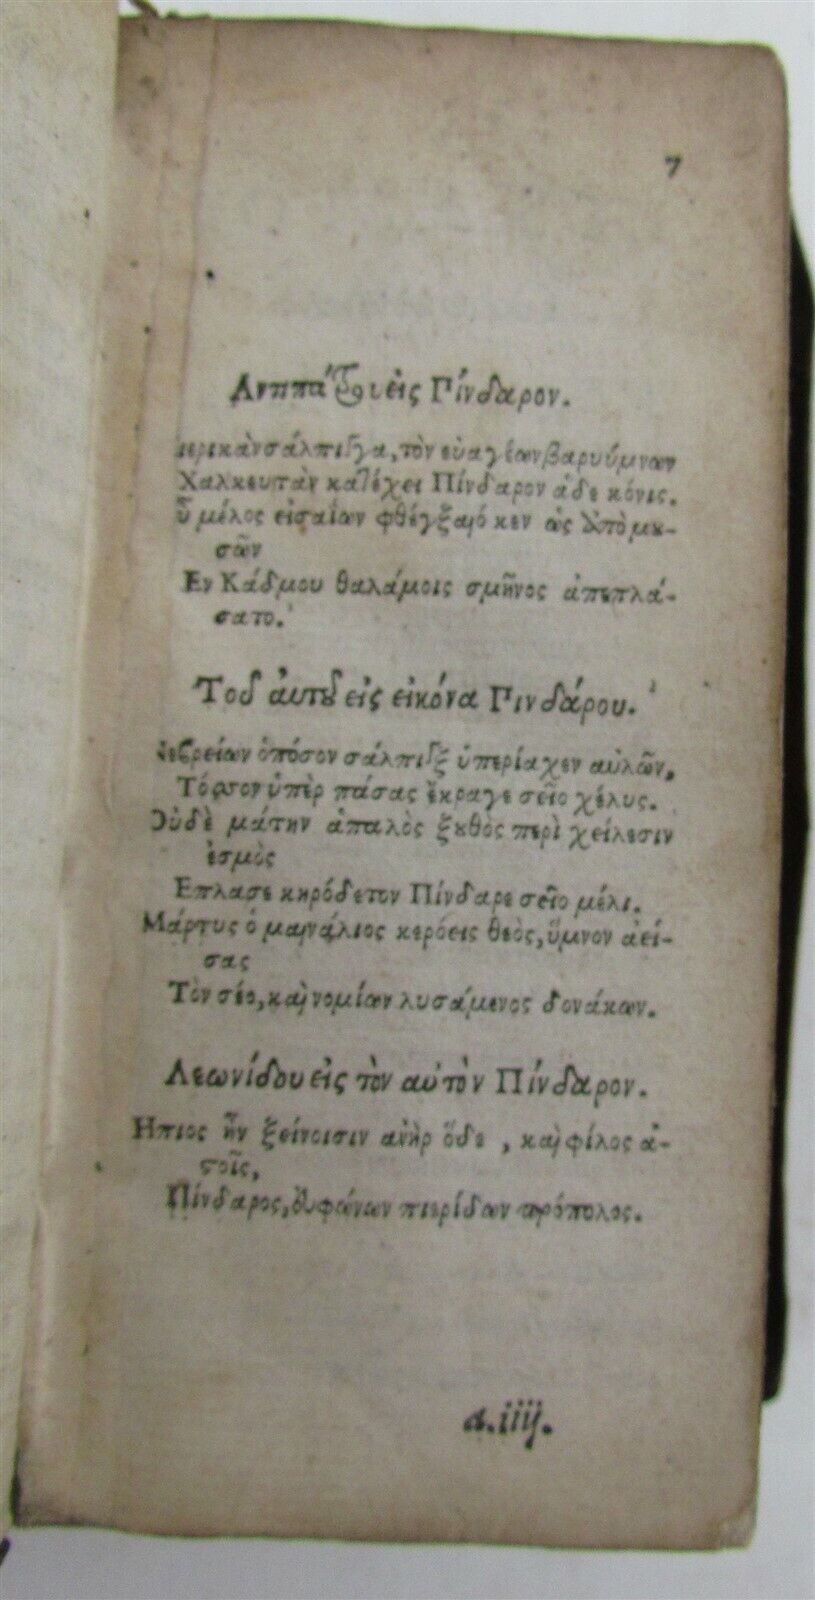 7
Αντιπάτρου εἰς Πίνδαρον.
ιερικὰν σάλπιγγα, τὸν εὐαγέων βαρυύμνων
Χαλκευτὰν κατέχει Πίνδαρον ἅδε κόνις.
ὗ μέλος εἰσαΐων φθέγξαιό κεν ὡς ἀπὸ μου-
σῶν
Εν Κάδμου θαλάμοις σμῆνος ἀπεπλά-
σατο.
Τοῦ ἀυτοῦ εἰς εἰκόνα Πινδάρου.
Νεβρείων ὁπόσον σάλπιγξ ὑπερίαχεν αὐλῶν,
Τόσσον ὑπὲρ πάσας ἔκραγε σεῖο χέλυς.
Οὐδὲ μάτην ἁπαλὸς ξουθὸς περὶ χείλεσιν
ἑσμὸς
Επλασε κηρόδετον Πίνδαρε σεῖο μέλι.
Μάρτυς ὁ μαινάλιος κερόεις θεὸς, ὕμνον ἀεί-
σας
Τὸν σέο, καὶ νομίων λυσάμενος δονάκων.
Λεωνίδου εἰς τὸν αὐτὸν Πίνδαρον.
Ηπιος ἦν ξείνοισιν ἀνὴρ ὅδε, καὶ φίλος ἀ-
στοῖς,
Πίνδαρος, εὐφώνων πιερίδων πρόπολος.
a.iiij.